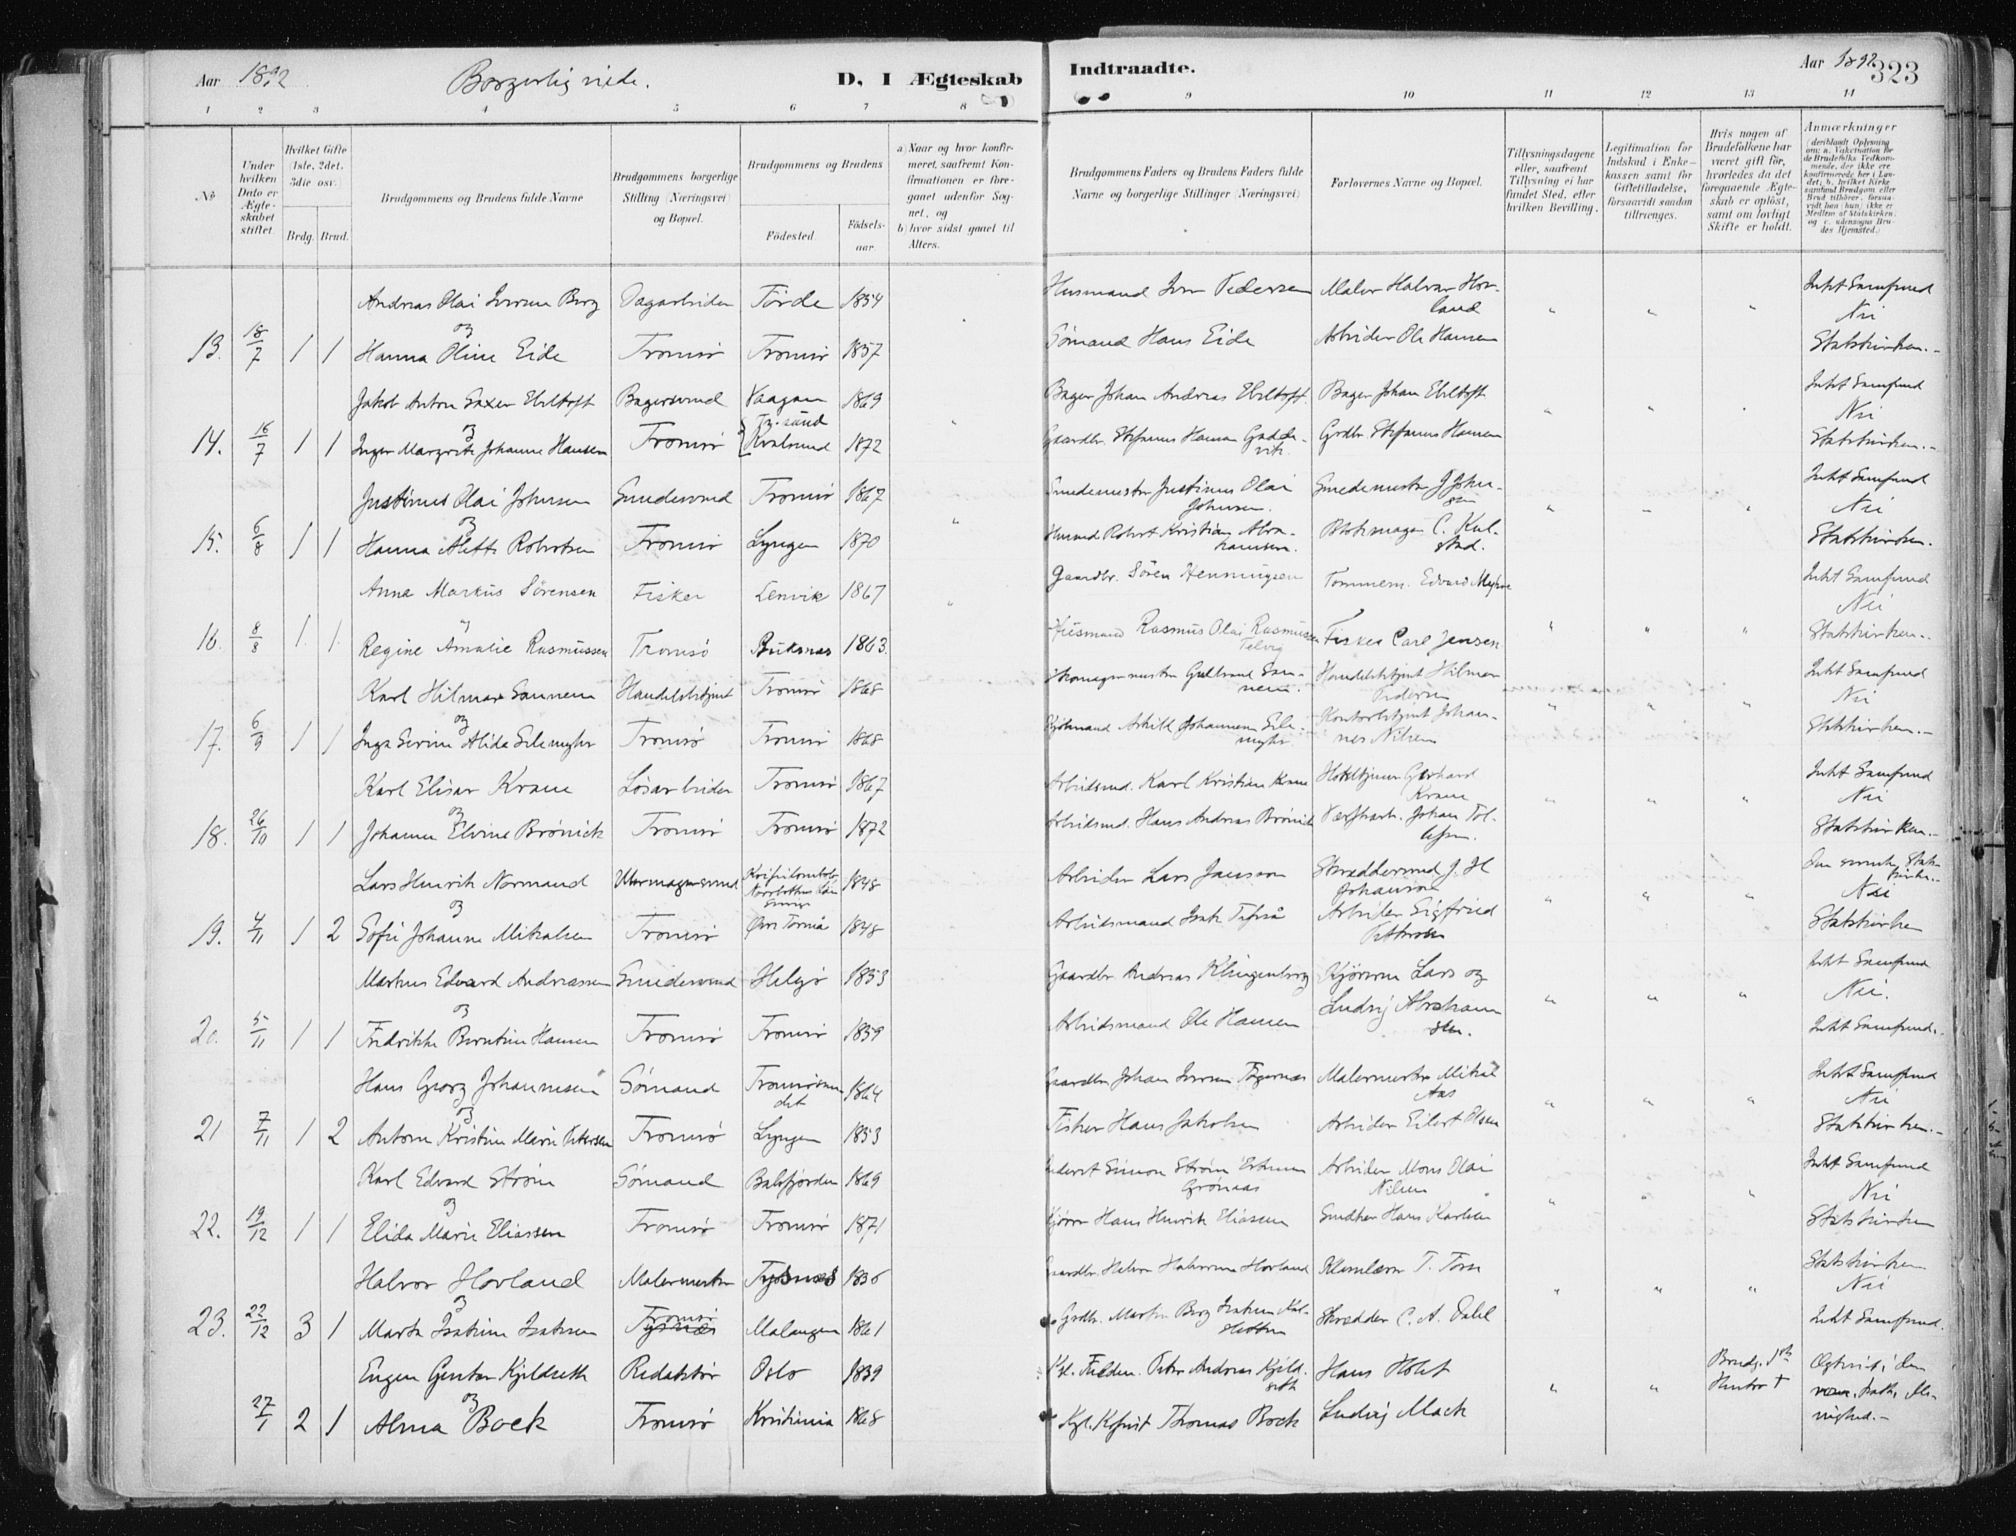 Aar 1892 Borgerlig viede. D. I Ægteskab Indtraadte. Aar 1892 323
1 2 3 4 5 6 7 8 9 10 11 12 13 14
No
Under hvilken Dato er Ægteskabet stiftet.
Hvilket Gifte (1ste, 2det, 3die osv.)
Brdg. Brud.
Brudgommens og Brudens fulde Navne
Brudgommens borgerlige Stilling (Næringsvei) og Bopæl.
Brudgommens og Brudens
Fødested.
Fødsels-aar.
a) Naar og hvor konfirmeret, saafremt Konfirmationen er foregaaet udenfor Sognet, og
b) hvor sidst gaaet til Alters.
Brudgommens Faders og Brudens Faders fulde Navne og borgerlige Stillinger (Næringsvei)
Forlovernes Navne og Bopæl.
Tillysningsdagene eller, saafremt Tillysning ei har fundet Sted, efter hvilken Bevilling.
Legitimation for Indskud i Enkekassen samt for Giftetilladelse, forsaavidt saadan tiltrænges.
Hvis nogen af Brudefolkene har været gift før, hvorledes da det foregaaende Ægteskab er opløst, samt om lovligt Skifte er holdt.
Anmærkninger (deriblandt Oplysning om: a. Vakcination for de Brudefolks Vedkommende, der ikke ere konfirmerede her i Landet; b. hvilket Kirkesamfund Brudgom eller Brud tilhører, forsaavidt han (hun) ikke er Medlem af Statskirken; og c. udensogns Brudes Hjemsted.)
Andreas Olai Iversen Berg Dagarbeider Førde 1854 Husmand Iver Pedersen Maler Halvar Hovland Intet Samfund
og Nei
13. 18/7 1 1 Hanna Oline Eide Tromsø Tromsø 1857 Sømand Hans Eide Arbeider Ole Hansen Statskirken.-
Jakob Anton Saxer Ebeltoft Bagersvend Vaagan 1869 Bager Johan Andreas Ebeltoft Bager Johan Ebeltoft Intet Samfund
og Nei
14. 16/7 1 1 Inger Margrete Johanne Hansen Tromsø Kvalsund 1872 Gaardbr. Stefanus Hansen Grdbr. Stefanus Hansen Statskirken.-
Justinus Olai Johnsen Smedesvend Tromsø 1867 Smedemester Justinus Olai Johnsen. Smedemester J. Johnsen Intet Samfund
og Nei
15. 6/8 1 1 Hanna Alette Robertsen Tromsø Lyngen 1870 Husmd Robert Kristian Abrahamsen. Blokmager C. Kulstad. Statskirken.
Anna Markus Sörensen Fisker Lenvik 1867 Gaardbr. Sören Henningsen Tømmerm. Edvard Intet Samfund
Nei
16. 8/8 1. 1. Regine Amalie Rasmussen Tromsö Buksnes 1863. Husmand Rasmus Olai Rasmussen Fisker Carl Jensen Statskirken.-
Karl Hilmar Sannem Handelsbetjent Tromsø 1868 Handelsbetjent Hilmar Pedersen Intet Samfund
og Nei
17. 6/9 1 1 Inga Serine Alida Tromsø Tromsø 1868 Kontorbetjent Johannes Nilsen Statskirken.-
Karl Elisar Krane Løsarbeider Tromsø 1867 Arbeidsmd. Karl Kristian Krane Gerhard Krane Intet Samfund
og Nei
18. 26/10 1 1 Johanne Elvine Brönick Tromsø Tromsø 1872 Arbeidsmd. Hans Andreas Brönick Johan Statskirken.-
Lars Henrik Normand Uhrmagersvend 1848 Arbeider Lars Jansson Skræddersvend J. H Johanson Den svenske Statskirke.-
og Nei
19. 4/11 1 2 Sofie Johanne Mikalsen Tromsø 1848 Arbeidsmand Isak Arbeider Sigfried Pettersen Statskirken
Markus Edvard Andreassen Smedesvend Helgø 1853 Gaardbr Andreas Klingenberg Kjørerne Lars og Intet Samfund
og Nei.
20. 5/11 1 1 Fredrikke Berntine Hansen Tromsø Tromsø 1859 Arbeidsmand Ole Hansen Ludvig Abrahamsen. Intet Samfund.
Hans Georg Johannesen Sømand Tromsøsundet 1864 Gaardbr Johan Iversen Malermester Mikal Aas Intet Samfund
og Nei
21 7/11 1 2 Antone Kristine Marie Petersen Tromsø Lyngen 1853 Fisker Hans Jakobsen Arbeider Eilert Olsen Statskirken.-
Karl Edvard Strøm Sømand Balsfjorden 1869 Simon Strøm Grønaas Arbeider Mons Olai Nilsen Intet Samfund
og Nei
22. 19/12 1 1 Elida Marie Eliassen Tromsø Tromsø 1871 Kjører Hans Henrik Eliassen Hans Karlsen Statskirken
Halvor Hovland Malermester Tysnæs 1836 Gaardbr Halvor Halvorsen Hovland T. Statskirken
og Nei
23. 22/12 3 1 Marta Isakine Isaksen Tromsø Malangen 1861 Grdbr. Martin Berg Isaksen Skrædder C. A. Dahl Intet Samfund.
Eugen Gustav Kjeldseth Redaktør Oslo 1839 Peter Andreas Kjeldseth Hans Holst Brudg. 1ste Hustru †
og
27/1 2 1 Alma Bock Tromsø Kristiania 1868 Kgl. Thomas Bock Ludvig Mack